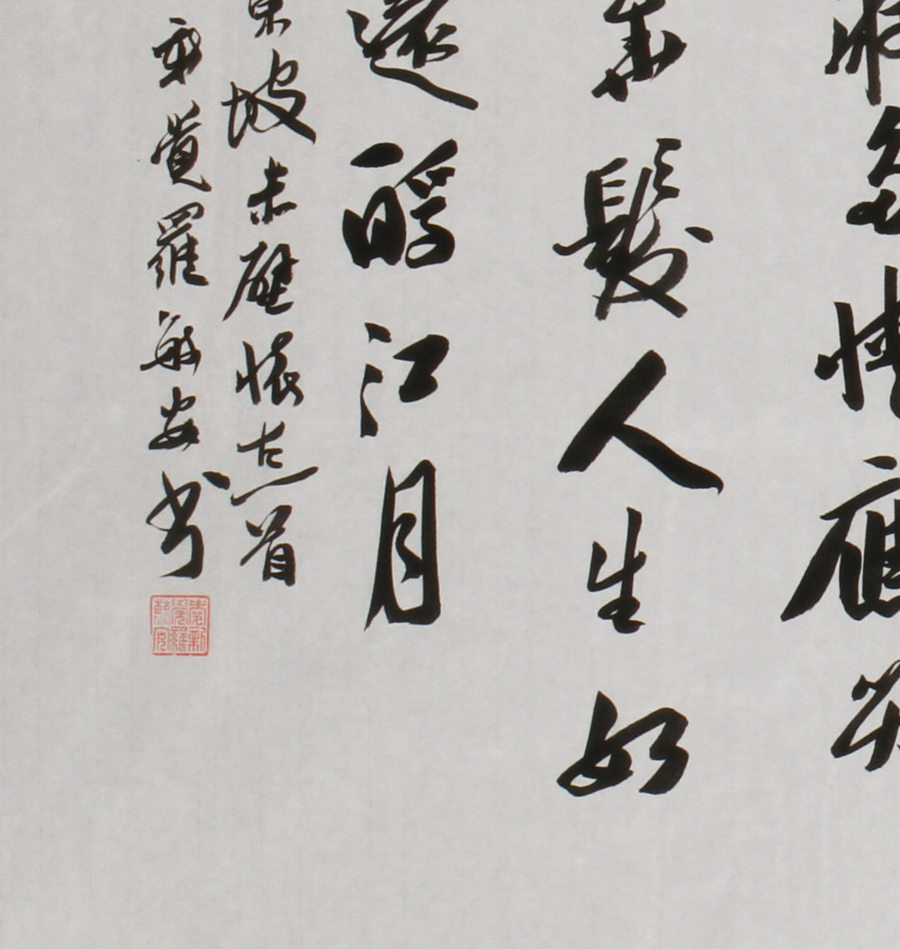 多情應笑
華髮人生如
還酹江月
東坡赤壁懷古一首
覺羅敏安書